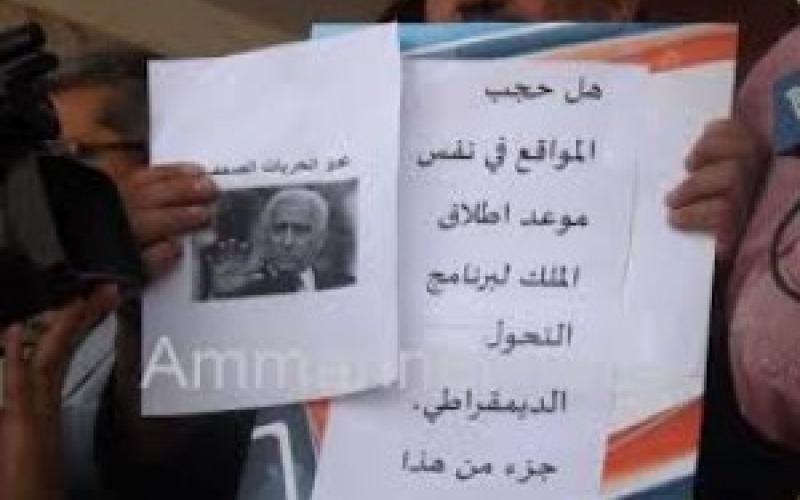 هل حجب
المواقع في نفس
موعد اطلاق
الملك لبرنامج
التحول
الديمقراطي.
جزء من هذا
عدو الحريات
Amman